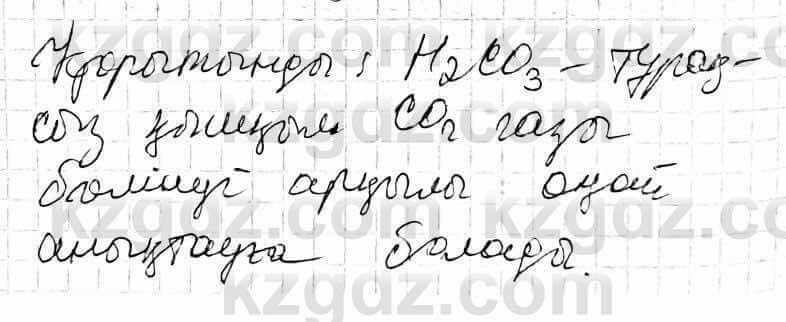 Қорытынды: H₂CO₃ - тұрақ-
сыз қышқыл CO₂ газы
бөлінуі арқылы оңай
анықтауға болады.
kzgdz.com kzgdz.com
kzgdz.com kzgdz.com
kzgdz.com